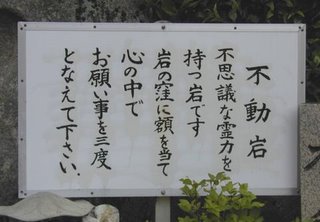 不動岩
不思議な霊力を
持つ岩です
岩の窪に額を当て
心の中で
お願い事を三度
となえて下さい.